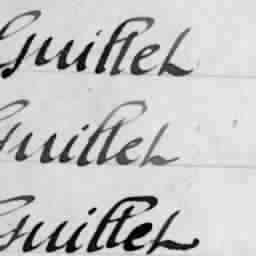 Guillet
Guillet
Guillet